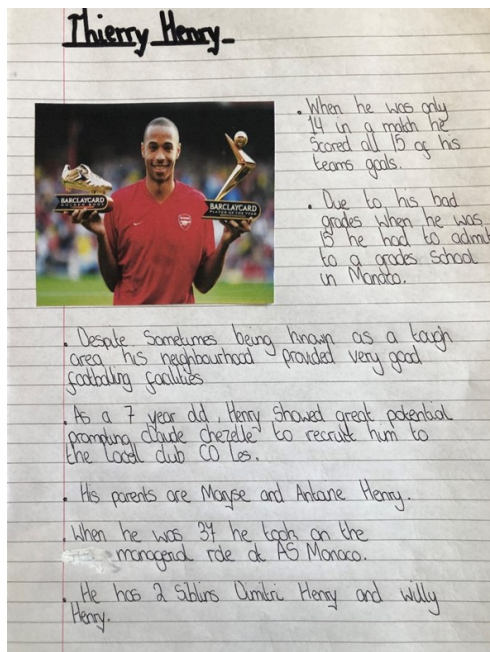 Thierry Henry
. When he was only
14 in a match he
scored all 15 of his
teams goals.
BARCLAYCARD
GOLDEN BOOT
BARCLAYCARD
PLAYER OF THE YEAR
Arsenal
. Due to his bad
grades when he was
15 he had to admit
to a grades school
in Monaco.
. Despite Sometimes being known as a tough
area his neighbourhood provided very good
footballing facilities
. As a 7 year old, Henry showed great potential
prompting claude chezelle to recruit him to
the local club CO les.
. His parents are Maryse and Antoine Henry.
. When he was 37 he took on the
managerial role at AS Monaco.
. He has 2 Siblins Dimitri Henry and willy
Henry.